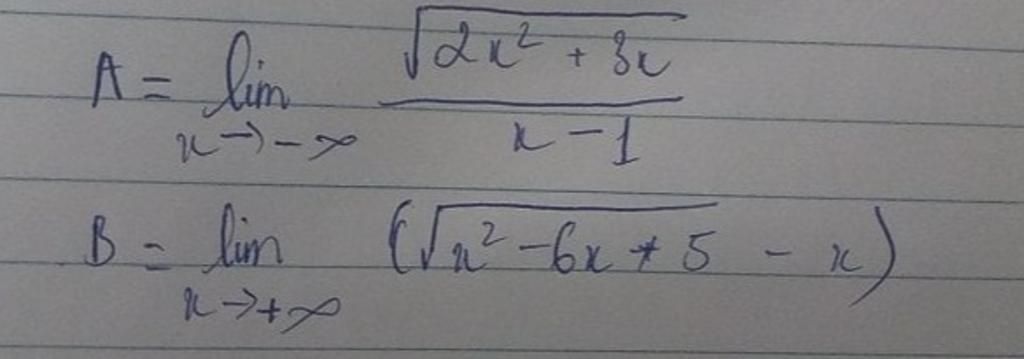 A = lim x→-∞ √(2x² + 3x) / (x - 1)
B = lim x→+∞ (√(x² - 6x + 5) - x)